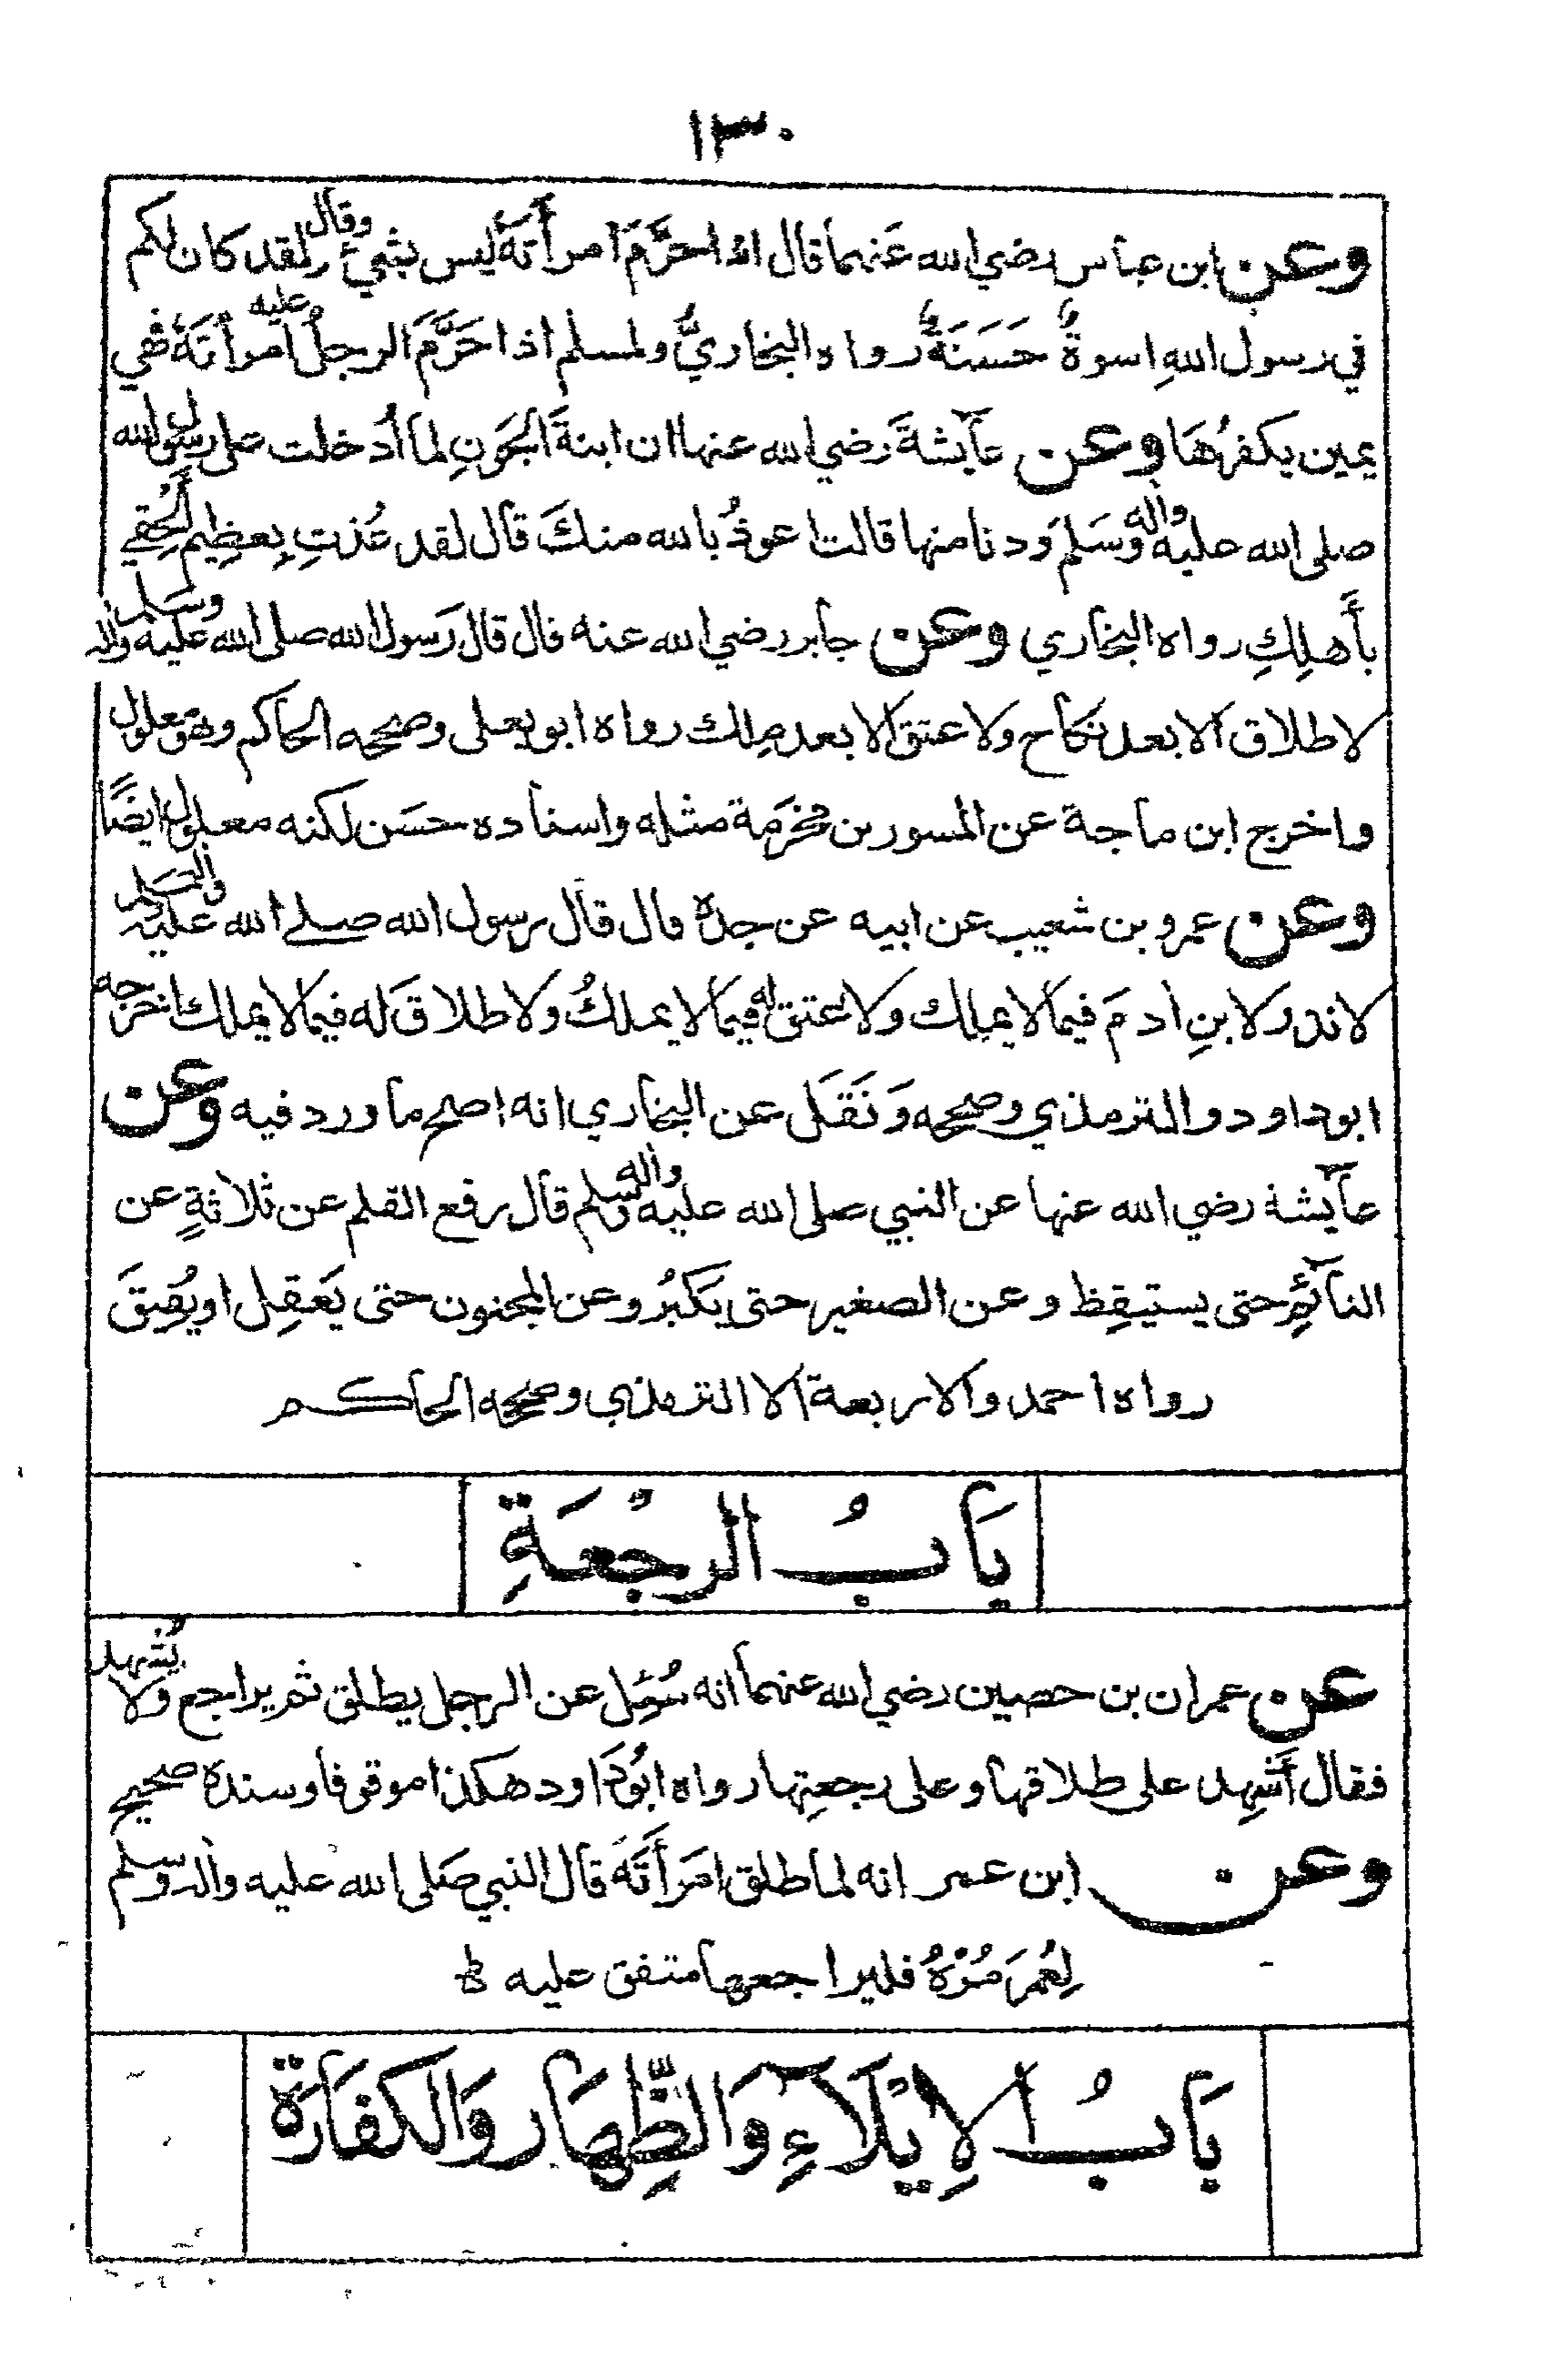 ١٣٠
وعن ابن عباس رضي الله عنهما قال اذا حَرَّمَ امرأتَهُ ليس بشيء وقال لقد كان لكم
في رسول اللهِ اسوةٌ حَسَنَةٌ رواه البخاريُّ ولمسلم اذا حَرَّمَ الرجلُ عليه امرأتَهُ فهي
يمين يكفرُهَا وعن عآيشةَ رضي الله عنها ان ابنةَ الجَونِ لما أُدخلت على رسول الله
صلى الله عليه وآله وسَلم وَدنا منها قالت اعوذُ بالله منكَ قال لقد عُذتِ بِعظِيم اَلْحِقي
بأَهلِكِ رواه البخاري وعن جابر رضي الله عنه قال قال رَسول الله صلى الله عليه وآله وسلم
لا طلاق الا بعد نكاح ولا عتق الا بعد مِلك رواه ابو يعلى وصححه الحاكم وهو معلول
واخرج ابن ماجة عن المسور بن مخرَمة مثله واسناده حسَن لكنه معلول ايضًا
وعن عمرو بن شعيب عن ابيه عن جده قال قال رسول الله صلى الله عليه وآله وسلم
لا نذر لابنِ ادمَ فيما لا يملِك ولا عتق له فيما لا يملكُ ولا طلاق له فيما لا يملك اخرجه
ابو داود والترمذي وصححه وَنَقَل عن البخاري انه اصح ما ورد فيه وعن
عآيشة رضي الله عنها عن النبي صلى الله عليه وآله وسلم قال رفع القلم عن ثلاثةٍ عن
النآئِمِ حتى يستيقِظ وعن الصغير حتى يَكبُر وعن المجنون حتى يَعقِل او يُفِيقَ
رواه احمد والاربعة الا الترمذي وصححه الحاكم
بَابُ الرجْعَةِ
عن عمران بن حصين رضي الله عنهما انه سُئِل عن الرجل يطلق ثم يراجع ولا يُشهد
فقال أَشهِد على طلاقها وعلى رجعتِها رواه ابُو دَاود هكذا موقوفا وسنده صحيح
وعن ابن عمر انه لما طلق امرَأَتَهُ قال النبي صَلى الله عليه وآله وسلم
لِعُمرَ مُرْهُ فليراجعها متفق عليه
بَابُ الإِيْلَآءِ وَالظِّهَار وَالكفَارَة